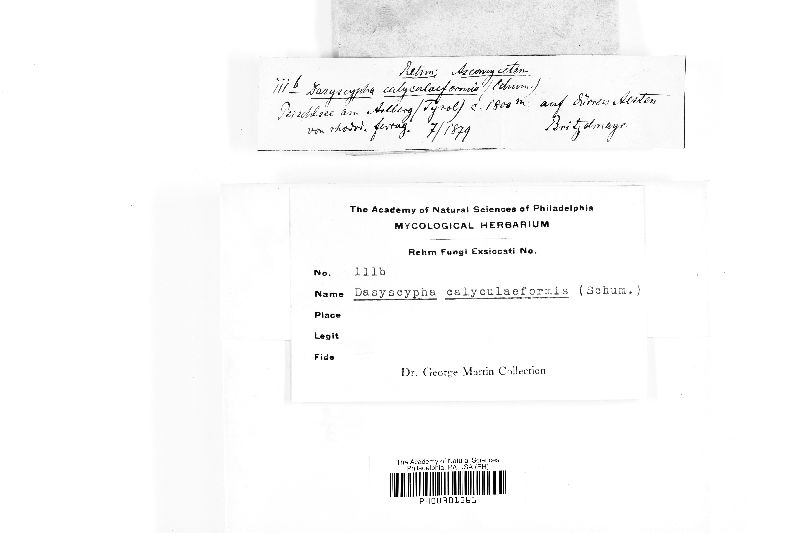 Rehm, Ascomyceten
111b Dasyscypha calyculaeformis (Schum.)
am Arlberg (Tyrol) c. 1800 m. auf dürren Aesten
von rhodod. ferrug. 7/1879 Britzelmayr.
The Academy of Natural Sciences of Philadelphia
MYCOLOGICAL HERBARIUM
Rehm Fungi Exsiccati No.
No. 111b
Name Dasyscypha calyculaeformis (Schum.)
Place
Legit
Fide
Dr. George Martin Collection
The Academy of Natural Sciences
Philadelphia, PA, USA (PH)